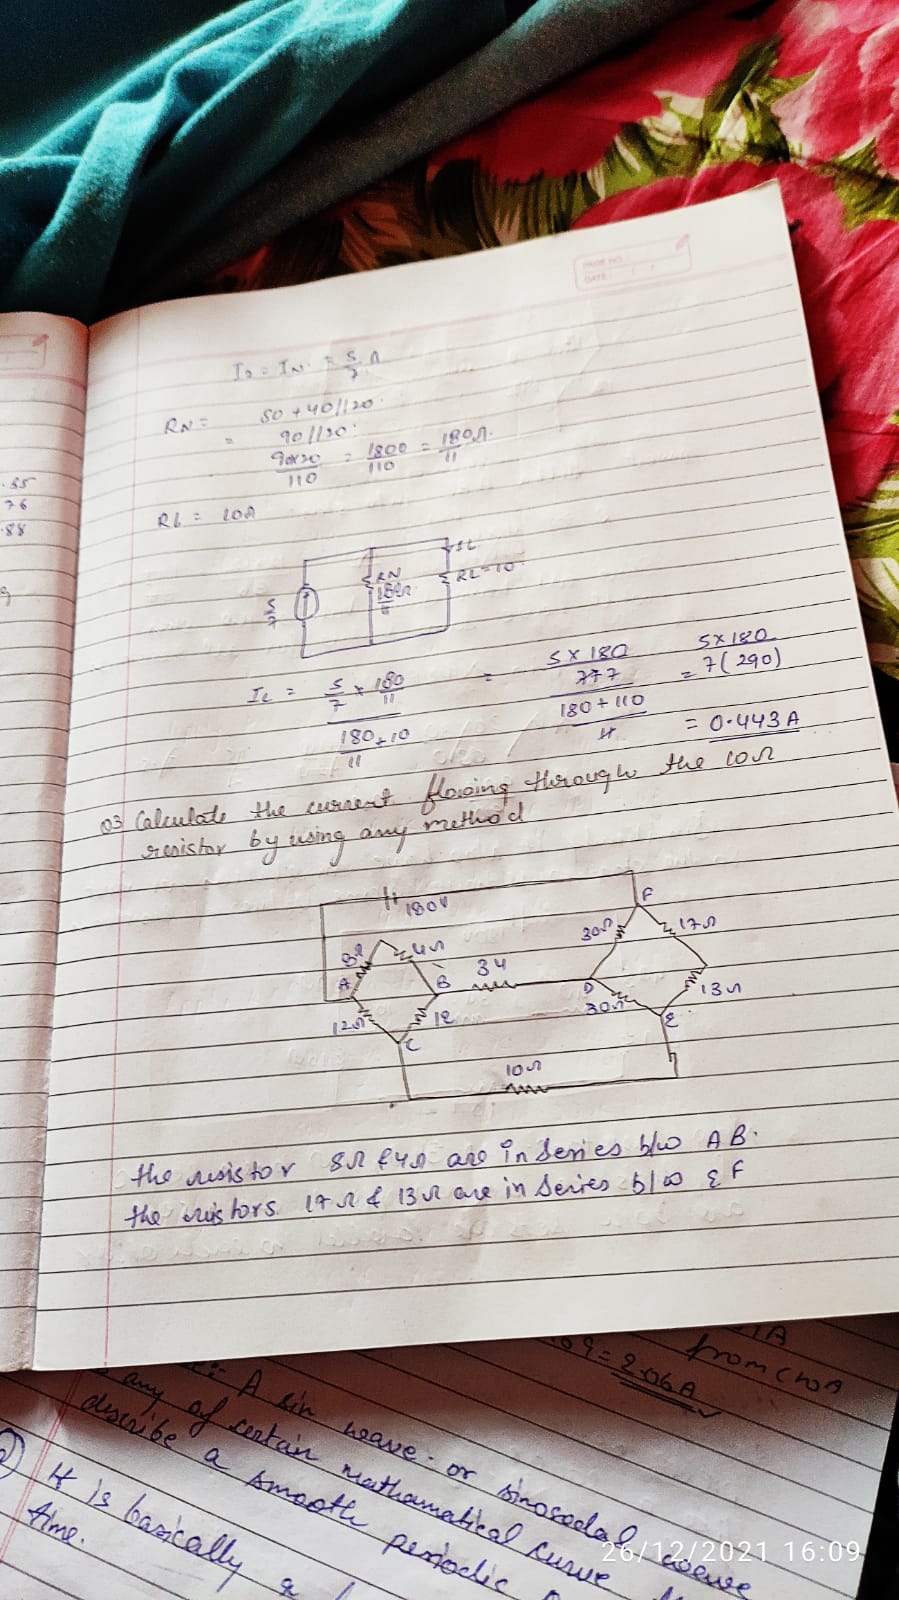 PAGE NO.
DATE
.35
76
.88
I2 = IN = 5/7 A
RN = 50 + 40 // 20
= 90 // 20
90×20/110 = 1800/110 = 180/11 Ω
RL = 10Ω
IL
5/7
RN
RL = 10
IL = 5/7 × 180/11 = 5 × 180 5 × 180
180/11 + 10 180 + 110 = 7(290)
= 0.443 A
Q3 Calculate the current flowing through the 10Ω
resistor by using any method
180V
F
8Ω 4Ω 30Ω 17Ω
A B 34 D
12Ω 12 30Ω 13Ω
C E
10Ω
the resistor 8Ω & 4Ω are in Series b/w AB.
the ristors 17Ω & 13Ω are in Series b/w EF
from
= 2.06A
A sin wave or sinosodal wave
any of certain mathamatical curve
describe a smooth periodic
It is basically a
time.
26/12/2021 16:09